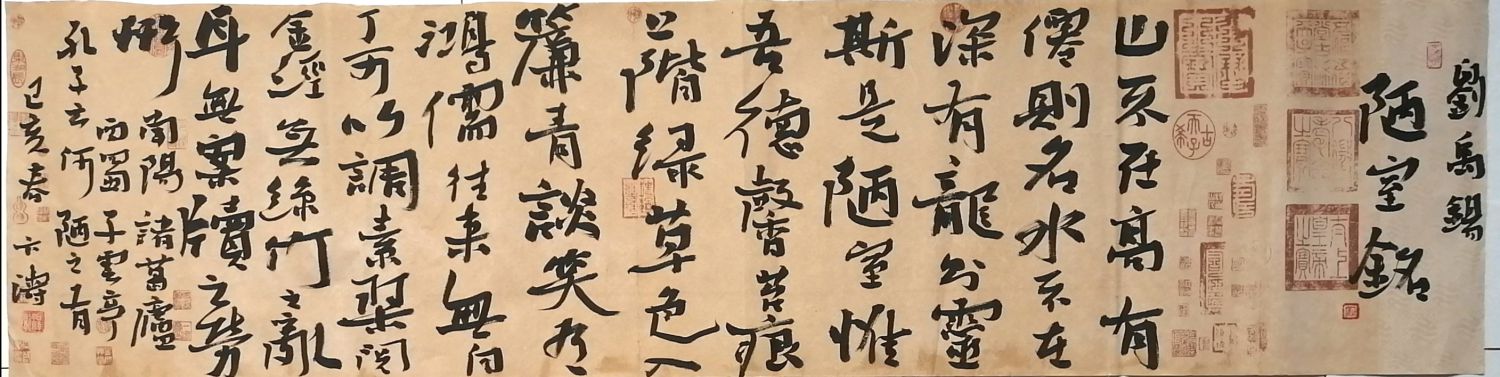 劉禹錫
陋室銘
山不在高有
僊則名水不在
深有龍則靈
斯是陋室惟
吾德馨苔痕
上階緑草色入
簾青談笑有
鴻儒往來無白
丁可以調素琹閱
金經無絲竹之亂
耳無案牘之勞
形南陽諸葛廬
西蜀子雲亭
孔子云何陋之有
己亥春
古希天子